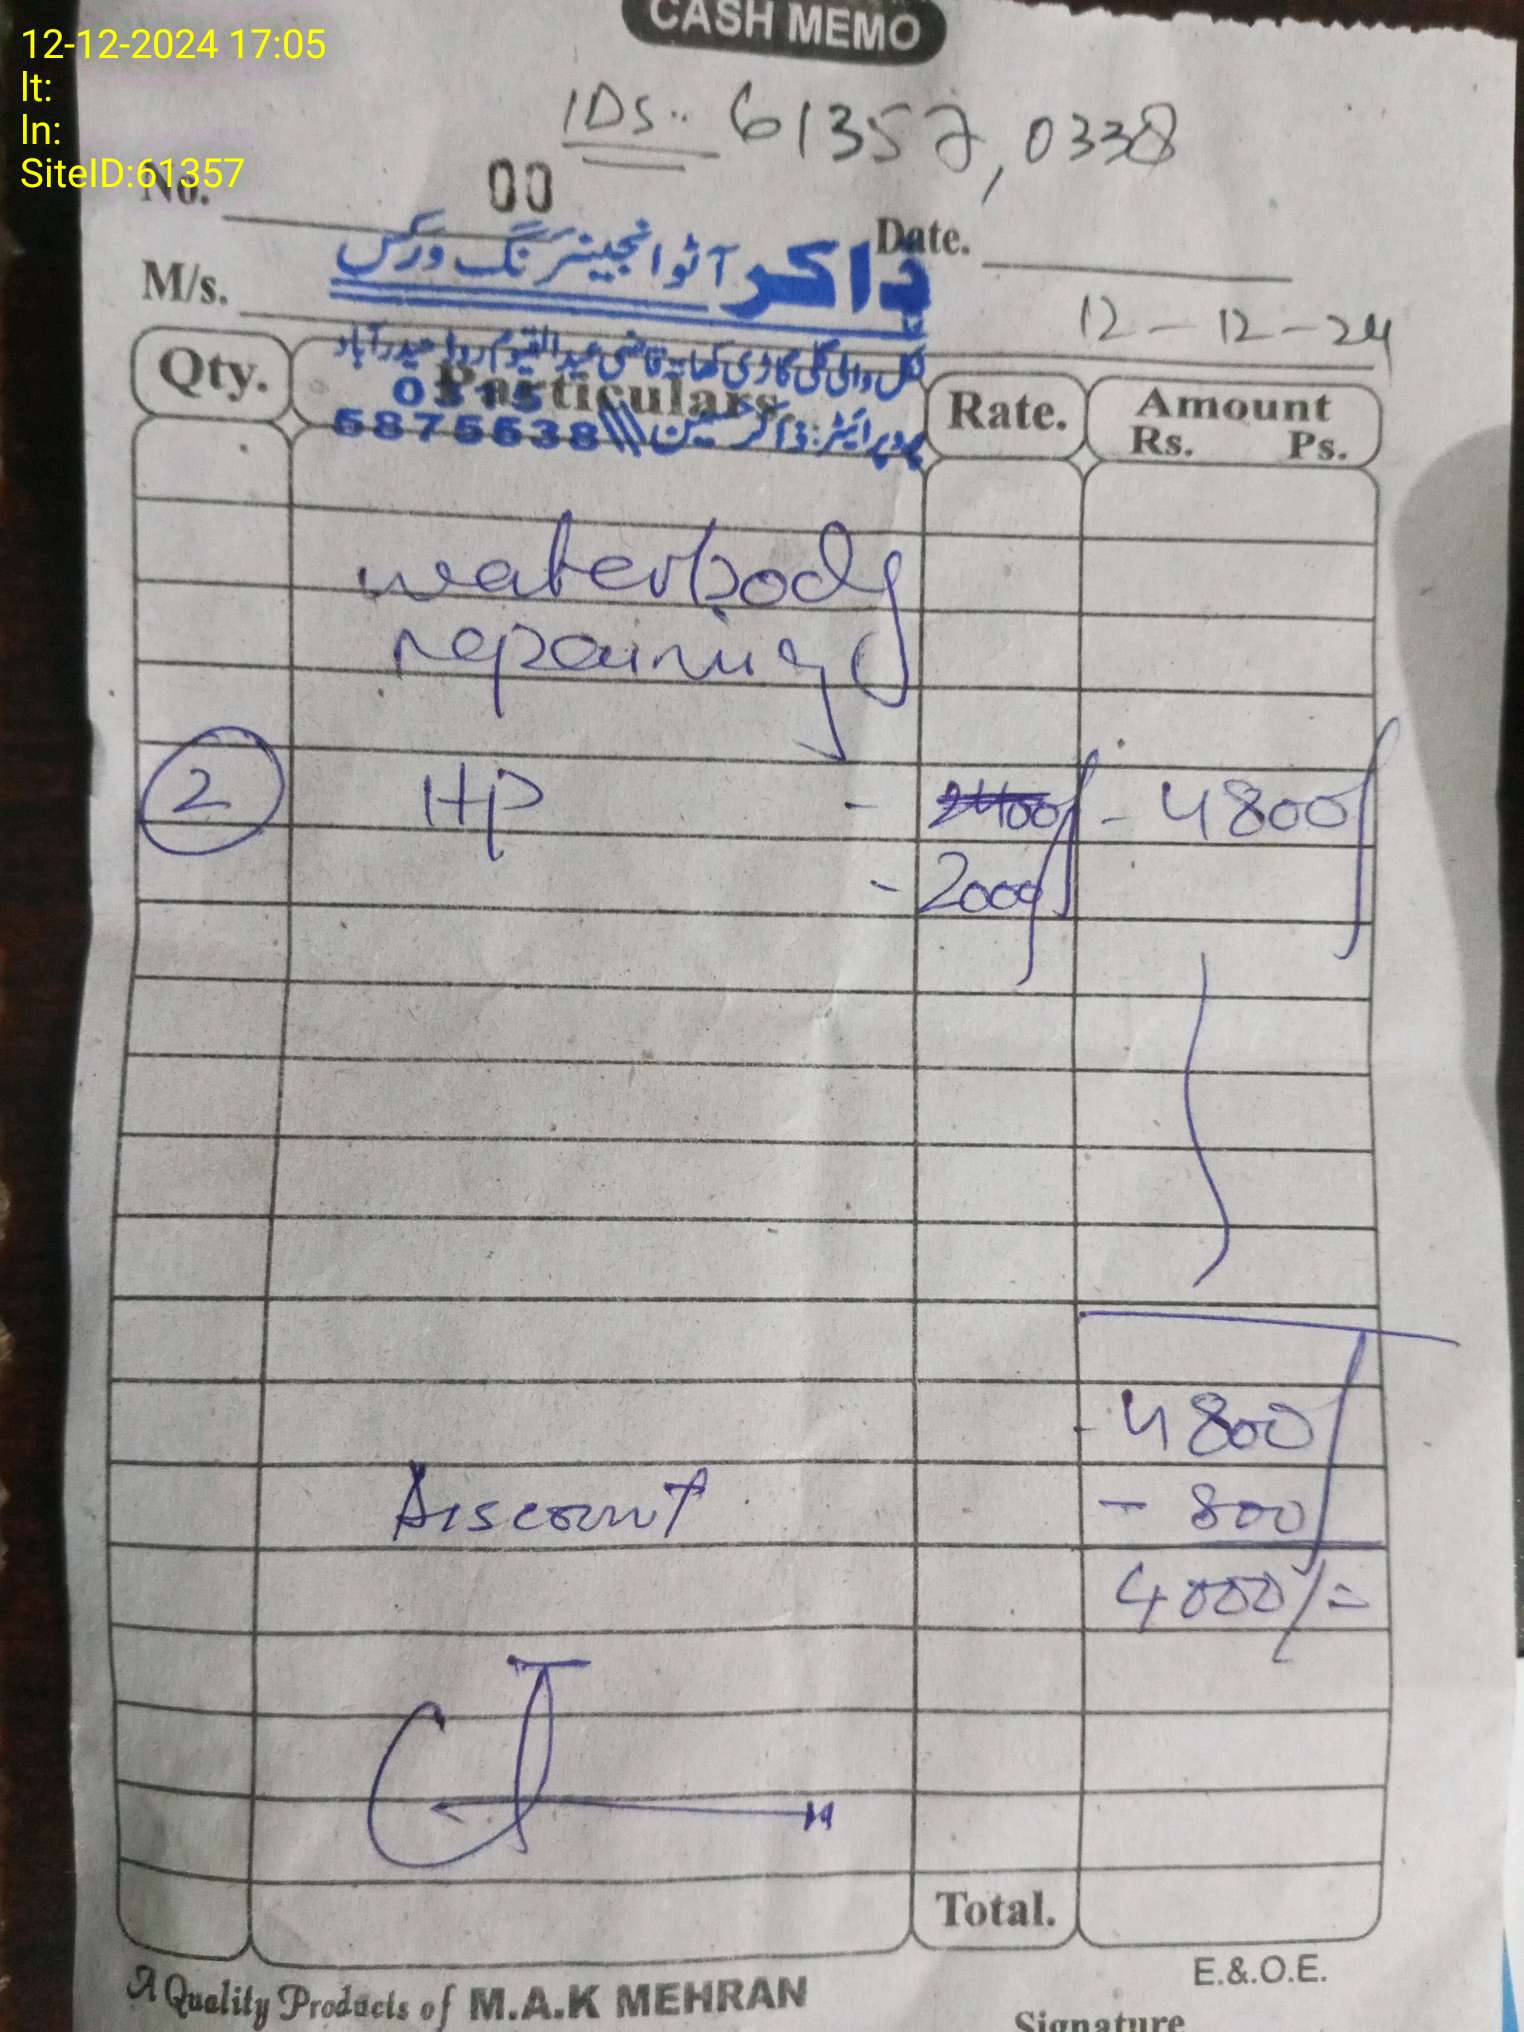 12-12-2024 17:05
lt:
ln:
SiteID:61357
CASH MEMO
IDs.. 61357, 0338
No. 00
ذاکر آٹو انجینئرنگ ورکس
Date.
12-12-24
M/s.
گلی گاڑی کھاتہ قاضی عبدالقیوم روڈ حیدرآباد
0315
5875538 پروپرائیٹر: ذاکر حسین
Qty. Particulars. Rate. Amount
Rs. Ps.
waterbody
repairing
2 HP - 2400/ - 4800/
- 2000/
- 4800/
Discount - 800/
4000/=
Total.
E.&.O.E.
A Quality Products of M.A.K MEHRAN
Signature